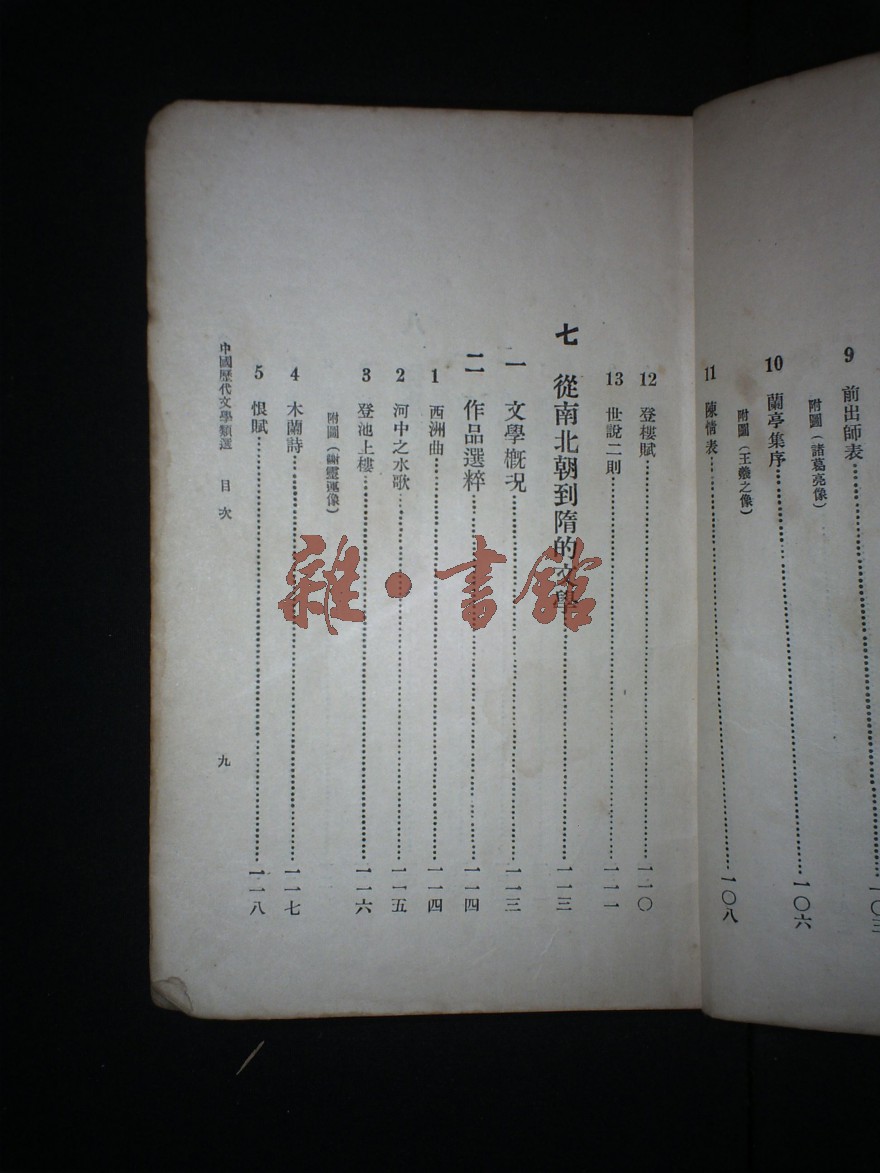 9 前出師表…一〇三
附圖（諸葛亮像）
10 蘭亭集序…一〇六
附圖（王羲之像）
11 陳情表…一〇八
12 登樓賦…一一〇
13 世說二則…一一一
七 從南北朝到隋的文學…一一三
一 文學概況…一一三
二 作品選粹…一一四
1 西洲曲…一一四
2 河中之水歌…一一五
3 登池上樓…一一六
附圖（謝靈運像）
4 木蘭詩…一一七
5 恨賦…一一八
中國歷代文學類選 目次 九
雜·書館